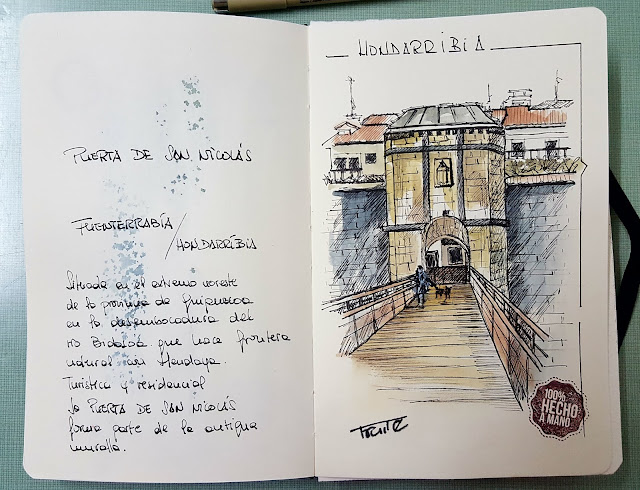 PUERTA DE SAN NICOLÁS
FUENTERRABÍA
/HONDARRIBIA
Situada en el extremo noreste
de la provincia de Guipuzcoa
en la desembocadura del
río Bidasoa que hace frontera
natural con Hendaya.
Turística y residencial
la PUERTA DE SAN NICOLÁS
forma parte de la antigua
muralla.
HONDARRIBIA
100%
HECHO
A MANO